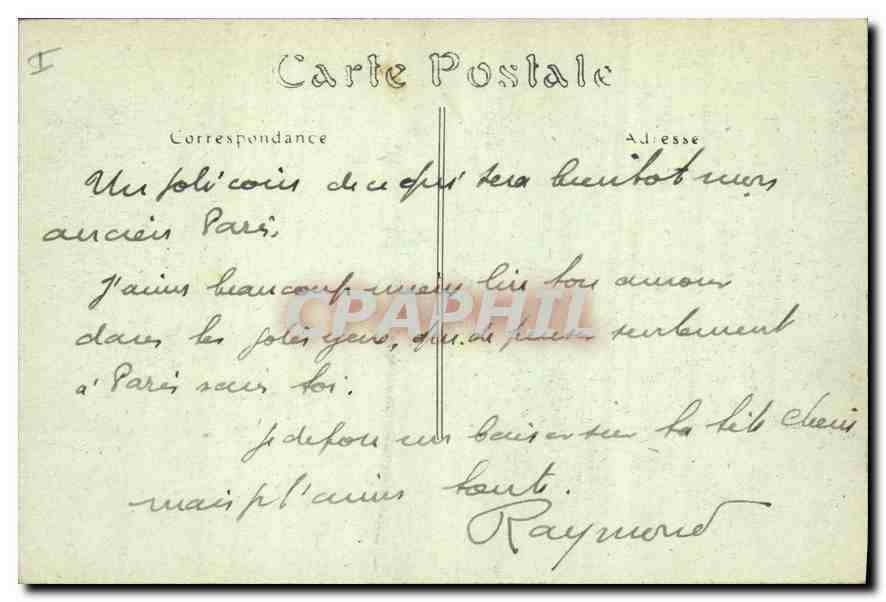 I
Carte Postale
Correspondance
Adresse
Un joli coin de ce qui sera bientot mon
ancien Paris.
J'aime beaucoup mieux lire ton amour
dans tes jolis yeux, que de penser seulement
à Paris sans toi.
Je depose un baiser sur ta tête cherie
mais je t'aime toute.
Raymond
CPAPHIL